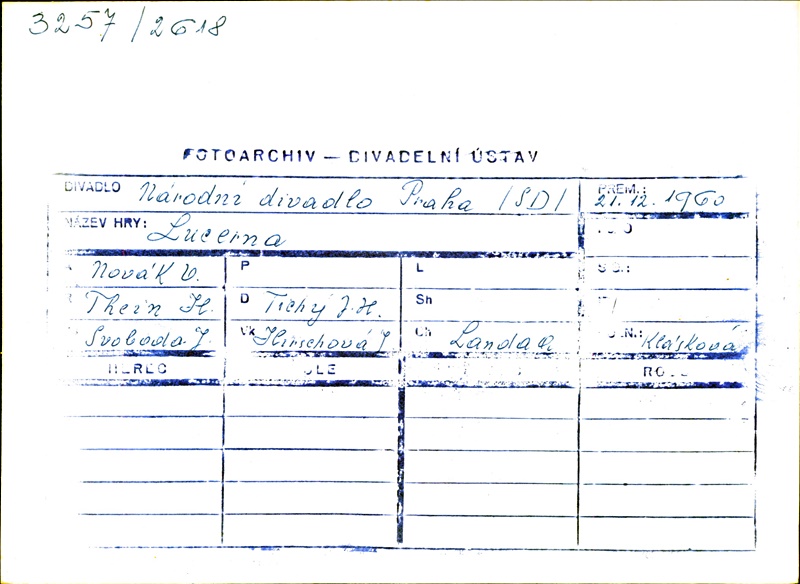 3257/2618
FOTOARCHIV — DIVADELNÍ ÚSTAV
DIVADLO Národní divadlo Praha /SD/ PREM.: 21.12.1960
NÁZEV HRY: Lucerna
Novák V. P L
Thein H. D Tichý J.H. Sh
Svoboda J. Vk Hirschová J. Ch Landa Klásková
HEREC